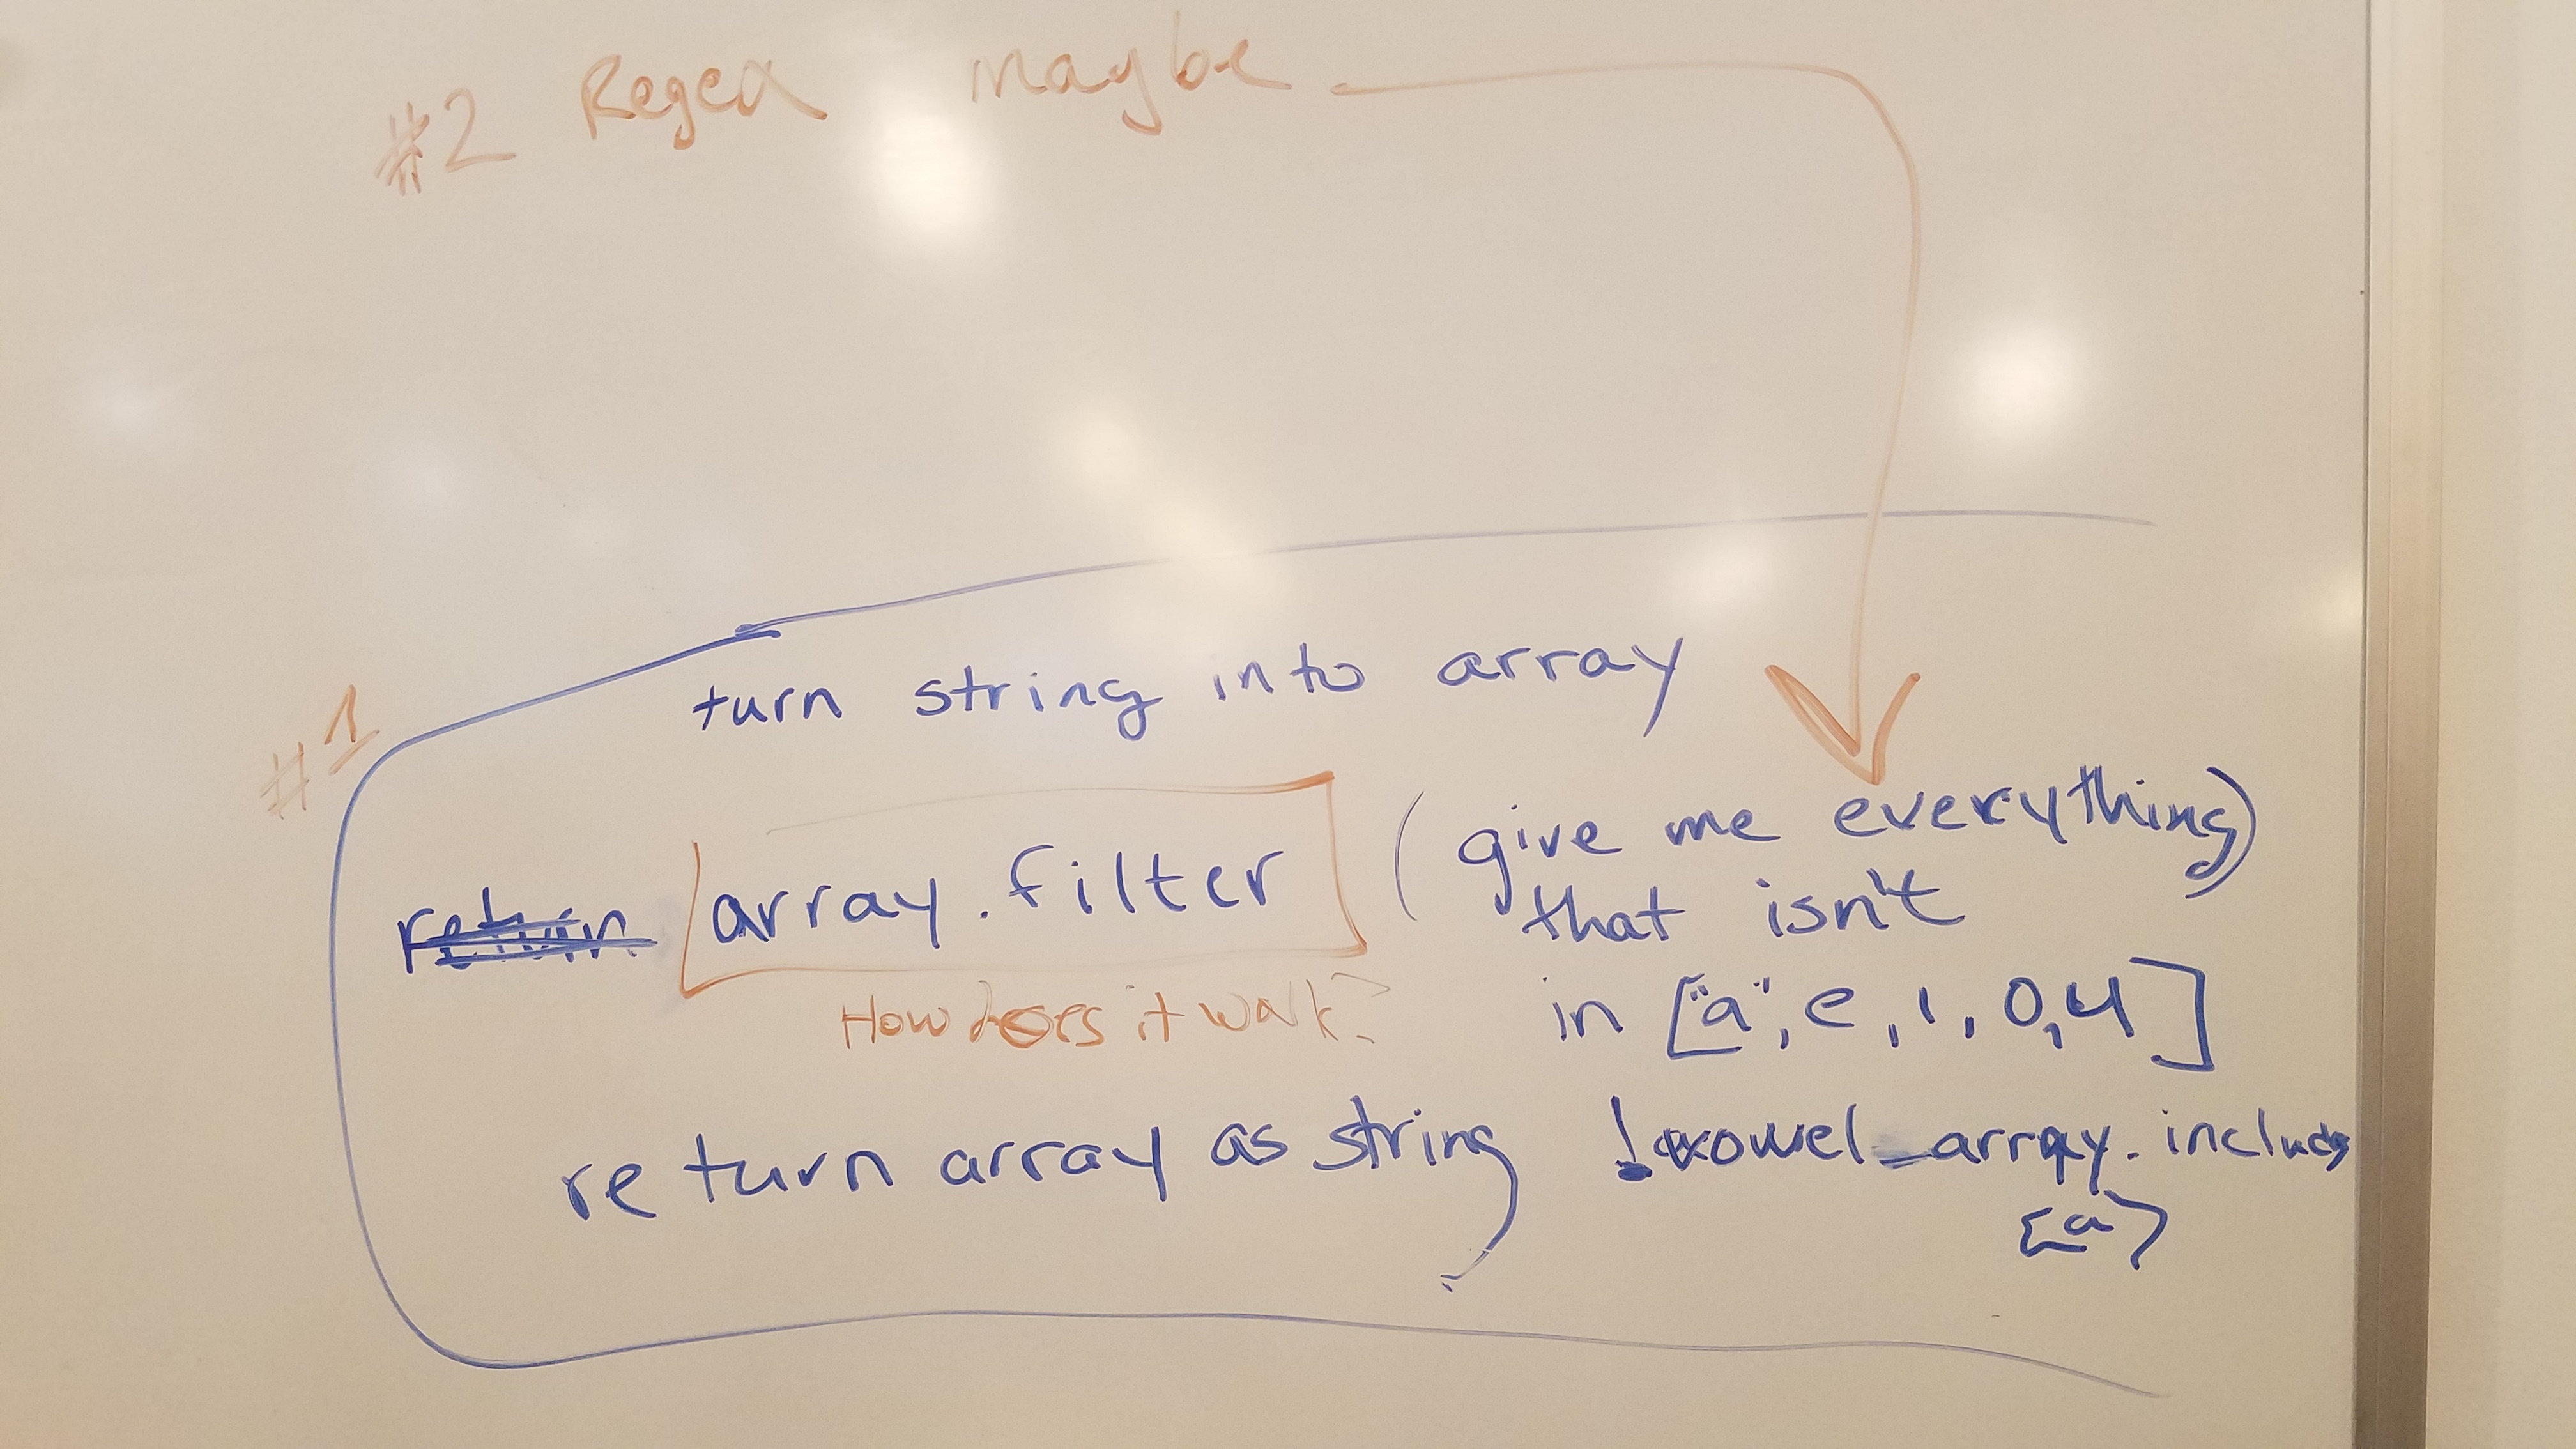 #2 Regex maybe
#1
turn string into array
return array.filter (give me everything)
that isn't
How does it work?
in ["a", e, i, o, u]
return array as string
!vowel_array.includes
(a)